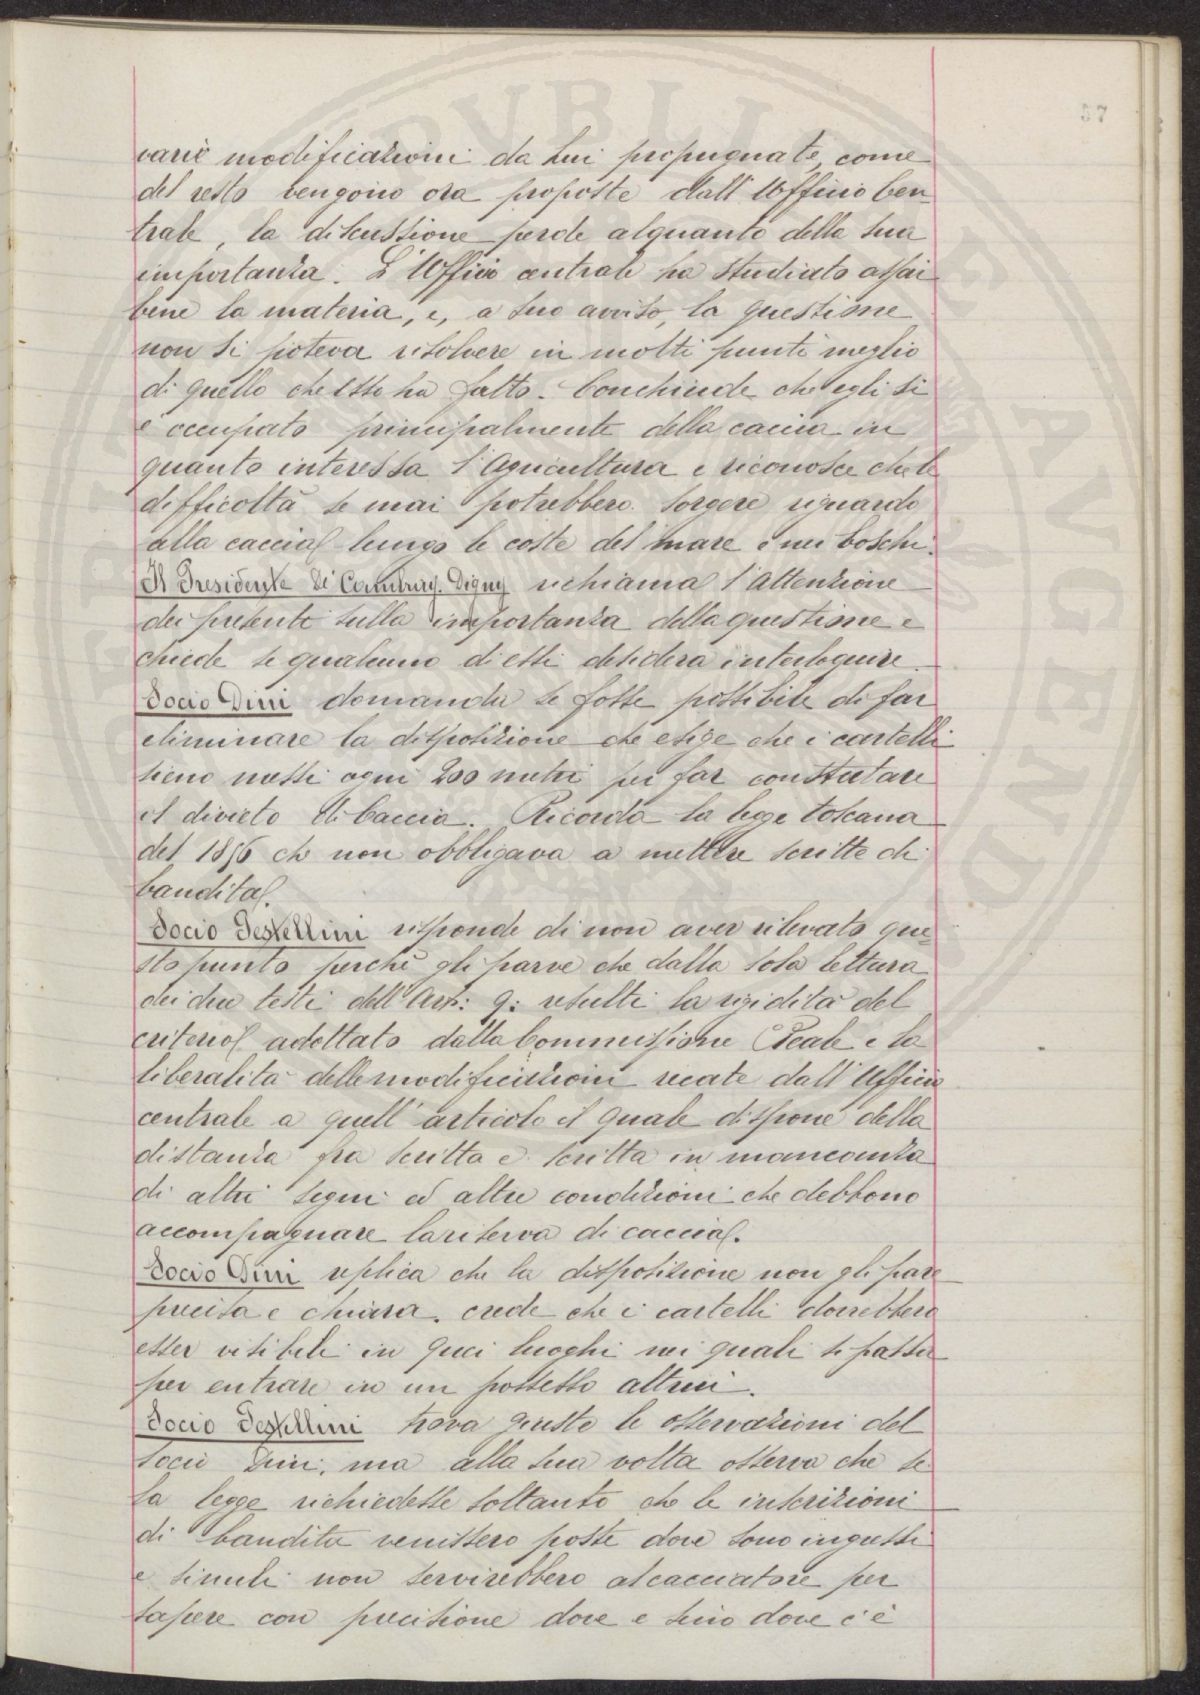 57
varie modificazioni da lui propugnate, come
del resto vengono ora proposte dall'Ufficio Cen
trale, la discussione perde alquanto della sua
importanza. L'Ufficio centrale ha studiato assai
bene la materia, e, a suo avviso, la questione
non si poteva risolvere in molti punti meglio
di quello che esso ha fatto. Conchiude che egli si
è occupato principalmente della caccia in
quanto interessa l'agricultura e riconosce che le
difficoltà se mai potrebbero sorgere riguardo
alla caccia lungo le coste del mare e nei boschi.
Il Presidente De' Cambray-Digny richiama l'attenzione
dei presenti sulla importanza della questione e
chiede se qualcuno di essi desidera interloquire.
Socio Dini domanda se fosse possibile di far
eliminare la disposizione che esige che i cartelli
sieno messi ogni 200 metri per far constatare
il divieto di Caccia. Ricorda la legge toscana
del 1856 che non obbligava a mettere scritte di
bandita.
Socio Pestellini risponde di non aver rilevato que=
sto punto perchè gli parve che dalla sola lettura
dei due testi dell'Art: 9: resulti la rigidità del
criterio adottato dalla Commissione Reale e la
liberalità delle modificazioni recate dall'Ufficio
centrale a quell'articolo il quale dispone della
distanza fra scritta e scritta in mancanza
di altri segni ed altre condizioni che debbono
accompagnare la riserva di caccia.
Socio Dini replica che la disposizione non gli pare
precisa e chiara. crede che i cartelli dovrebbero
esser visibili in quei luoghi nei quali si passa
per entrare in un possesso altrui.
Socio Pestellini trova giuste le osservazioni del
socio Dini, ma alla sua volta osserva che se
la legge richiedesse soltanto che le inscrizioni
di bandita venissero poste dove sono ingressi
e simili non servirebbero al cacciatore per
sapere con precisione dove e sino dove c'è